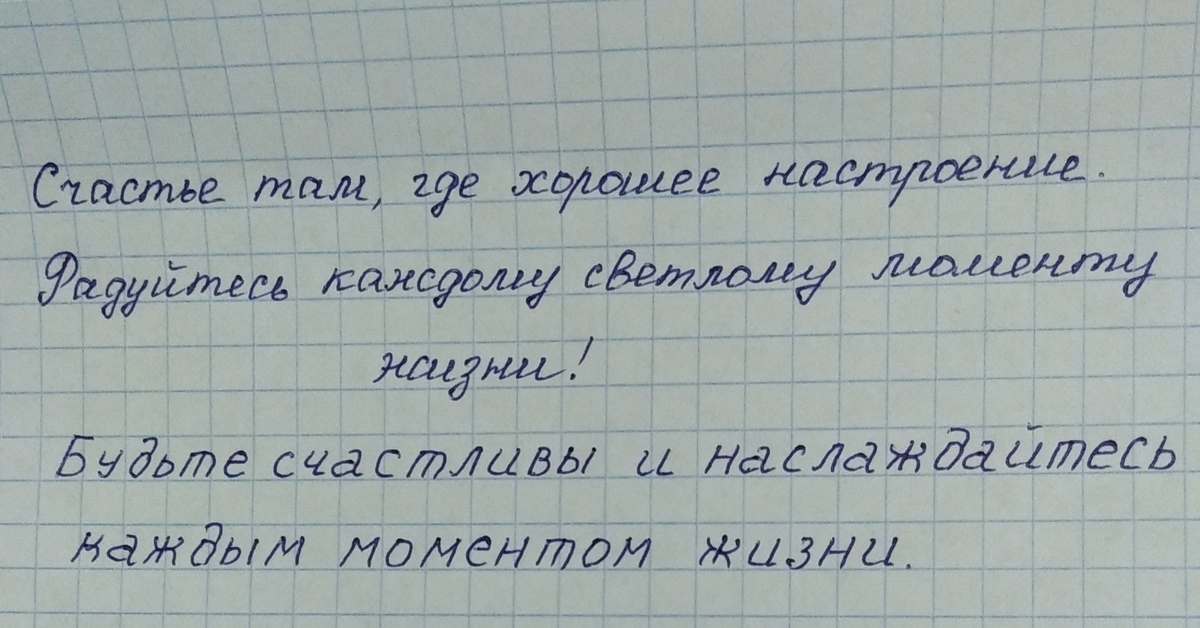 Счастье там, где хорошее настроение.
Радуйтесь каждому светлому моменту
жизни!
Будьте счастливы и наслаждайтесь
каждым моментом жизни.